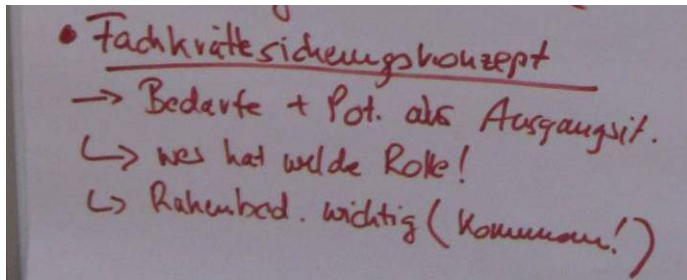 • Fachkräftesicherungskonzept
→ Bedarfe + Pot. als Ausgangsit.
↳ wer hat welche Rolle!
↳ Rahmenbed. wichtig (Kommunen!)